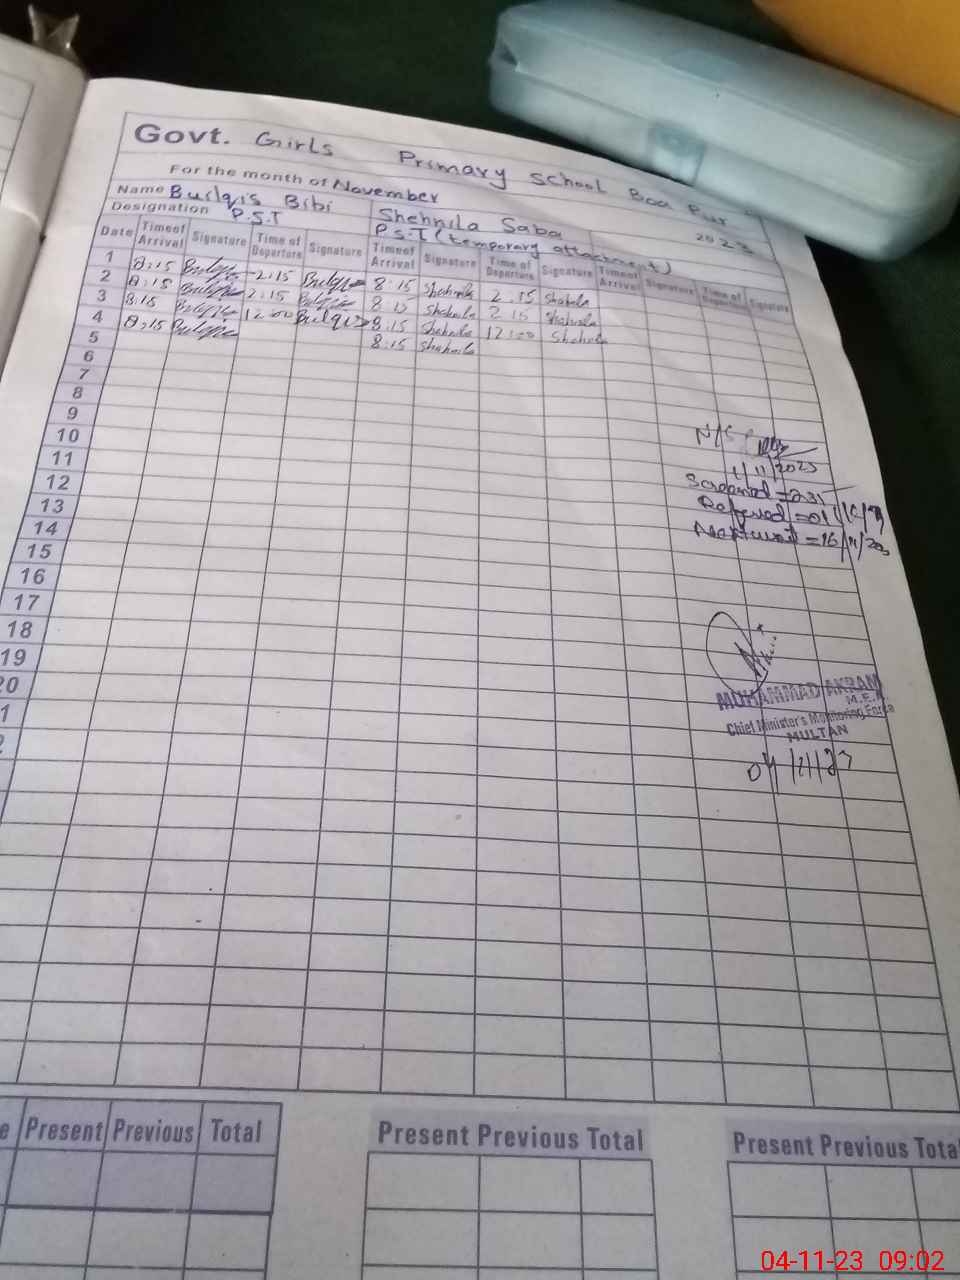 Govt. Girls Primary School Boa Pur
For the month of November 2023
Name Builqis Bibi Shehnila Saba
Designation P.S.T P.S.T (temporary attachment)
Date Time of Arrival Signature Time of Departure Signature Time of Arrival Signature Time of Departure Signature Time of Arrival Signature Time of Departure Signature
1 8:15 Builqis 2:15 Builqis 8:15 Shahnila 2:15 Shahnila
2 8:15 Builqis 2:15 Builqis 8:15 Shahnila 2:15 Shahnila
3 8:15 Builqis 12:00 Builqis 8:15 Shahnila 12:00 Shahnila
4 8:15 Builqis 8:15 Shahnila
5
6
7
8
9
10
11
12
13
14
15
16
17
18
19
20
1
2
N/S
1/11/2023
Screened = 231
Referred = 01
= 16/11/20
MUHAMMAD AKRAM
M.E.A
Chief Minister's Monitoring Force
MULTAN
04/11/23
e Present Previous Total
Present Previous Total
Present Previous Total
04-11-23 09:02